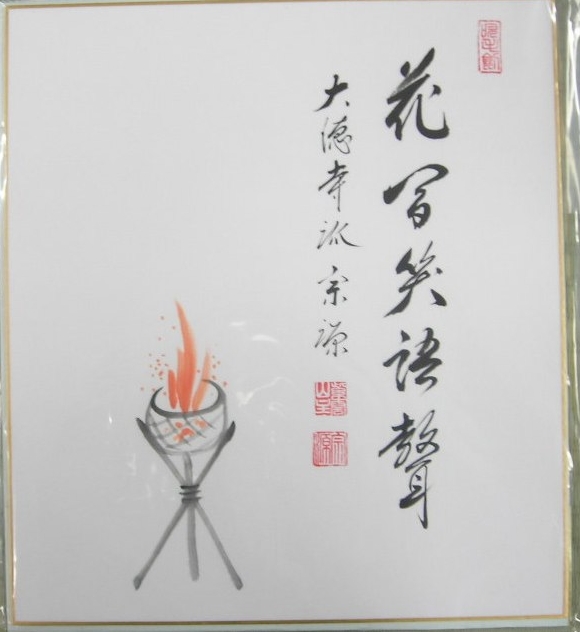 花間笑語聲
大徳寺派 宗源